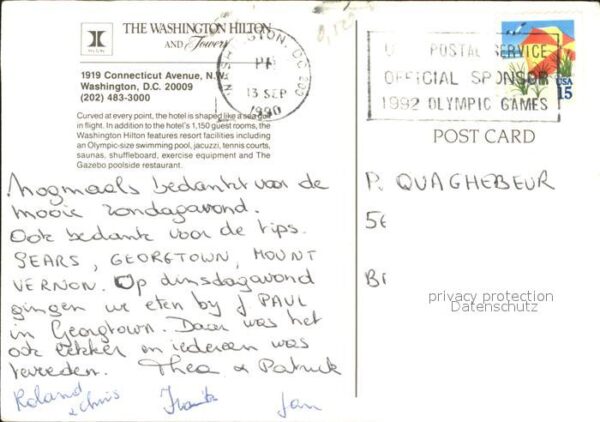 THE WASHINGTON HILTON
AND Towers
1919 Connecticut Avenue, N.W.
Washington, D.C. 20009
(202) 483-3000
Curved at every point, the hotel is shaped like a sea gull
in flight. In addition to the hotel's 1,150 guest rooms, the
Washington Hilton features resort facilities including
an Olympic-size swimming pool, jacuzzi, tennis courts,
saunas, shuffleboard, exercise equipment and The
Gazebo poolside restaurant.
PM
13 SEP
1990
POSTAL SERVICE
OFFICIAL SPONSOR
1992 OLYMPIC GAMES
USA
15
POST CARD
Nogmaals bedankt voor de
mooie zondagavond.
Ook bedankt voor de tips.
SEARS, GEORGETOWN, MOUNT
VERNON. Op dinsdagavond
gingen we eten by J PAUL
in Georgtown. Daar was het
ook lekker en iedereen was
tevreden. Thea & Patrick
Roland
& Chris Frank Jan
P. QUAGHEBEUR
5E
BE
privacy protection
Datenschutz